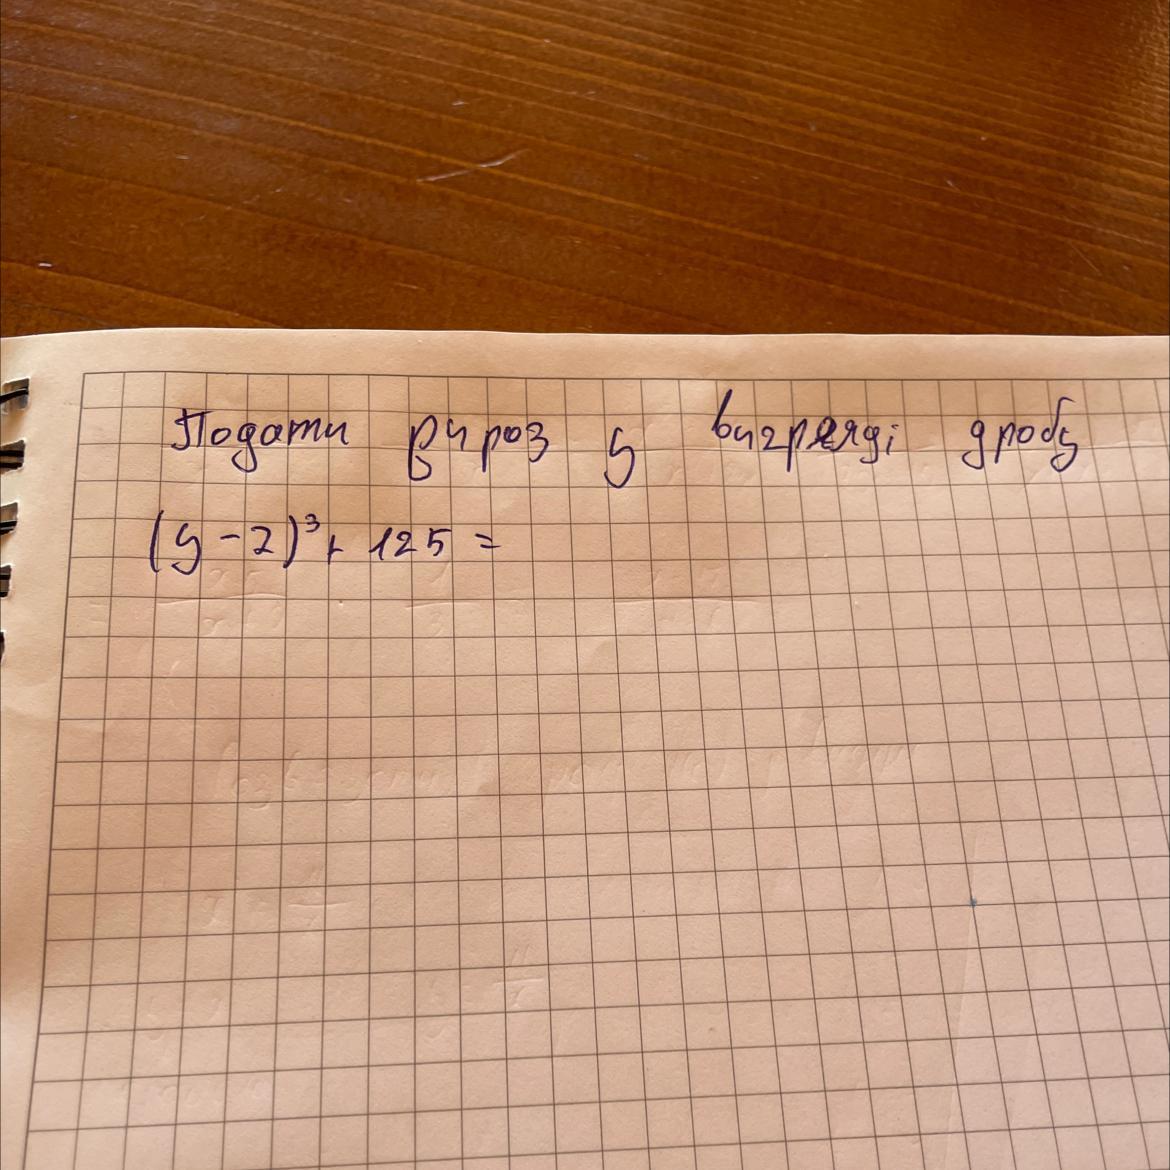 Подати вираз у вигляді дробу
(y - 2)³ + 125 =